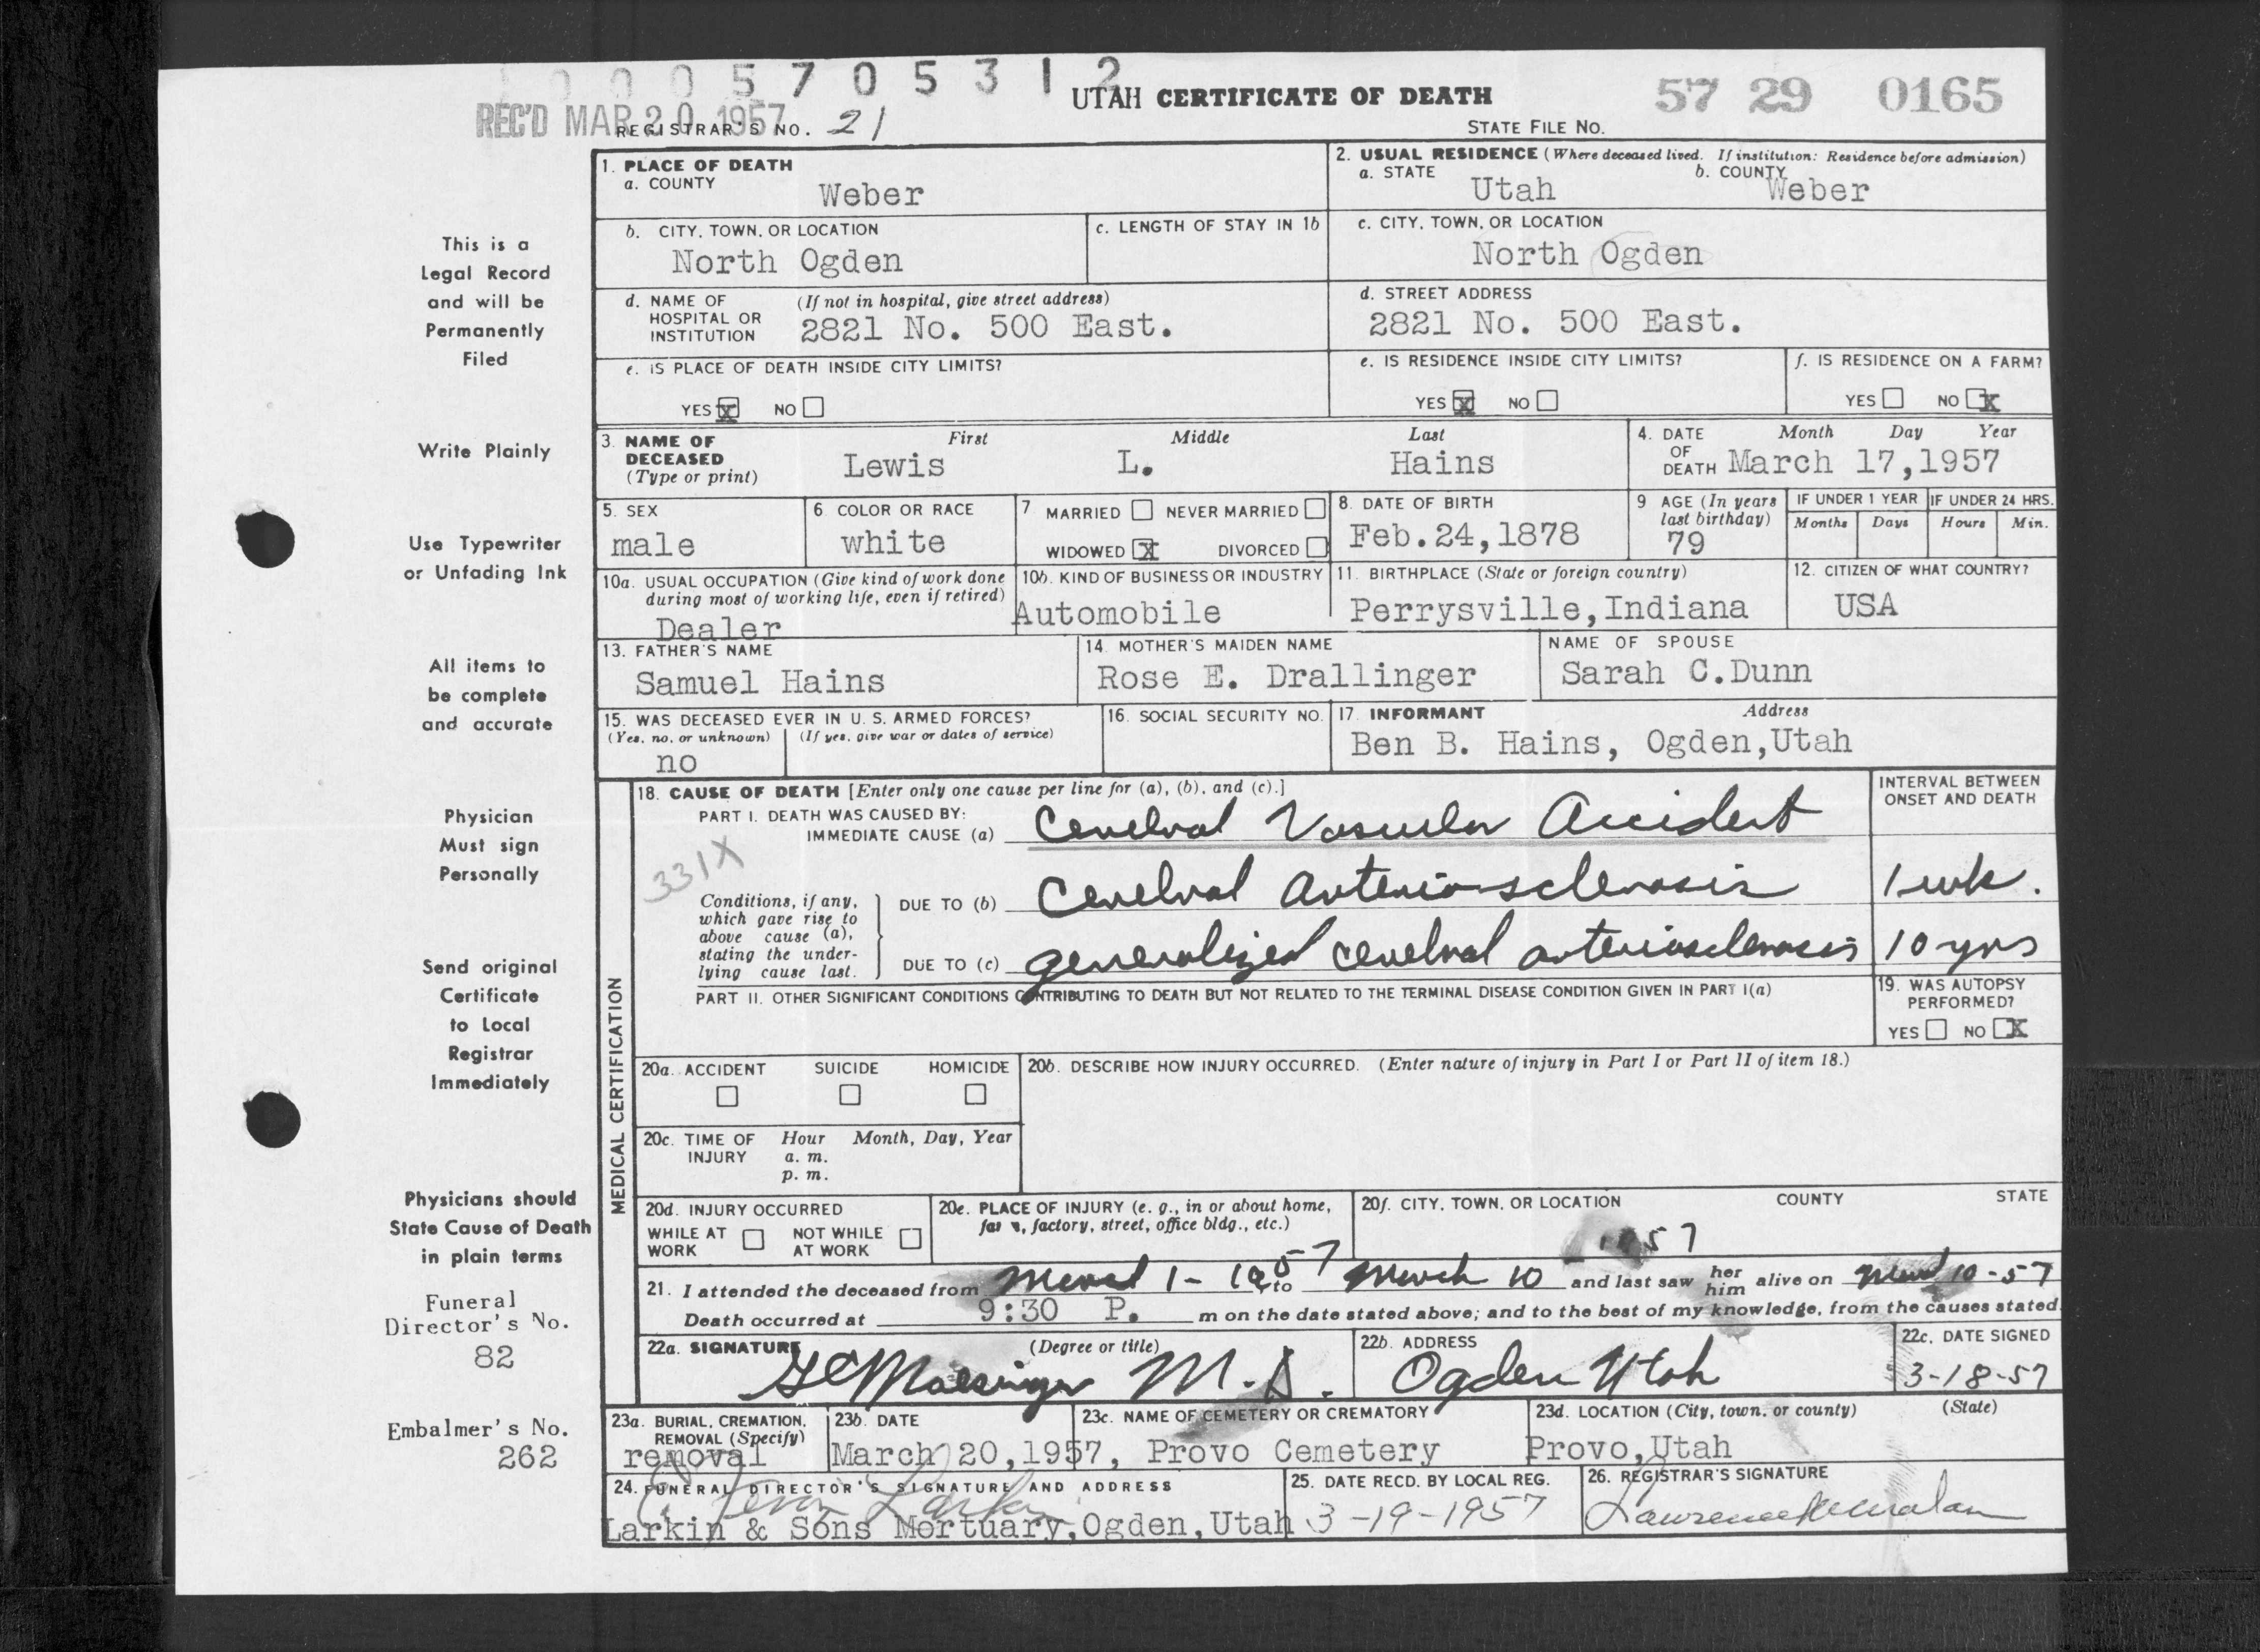 0 0 0 5 7 0 5 3 1 2
UTAH CERTIFICATE OF DEATH
57 29 0165
REC'D MAR 20 1957
REGISTRAR'S NO. 21
STATE FILE NO.
1. PLACE OF DEATH
a. COUNTY
Weber
2. USUAL RESIDENCE (Where deceased lived. If institution: Residence before admission)
a. STATE
Utah
b. COUNTY
Weber
b. CITY, TOWN, OR LOCATION
North Ogden
c. LENGTH OF STAY IN 1b
c. CITY, TOWN, OR LOCATION
North Ogden
d. NAME OF HOSPITAL OR INSTITUTION
(If not in hospital, give street address)
2821 No. 500 East.
d. STREET ADDRESS
2821 No. 500 East.
e. IS PLACE OF DEATH INSIDE CITY LIMITS?
YES X NO
e. IS RESIDENCE INSIDE CITY LIMITS?
YES X NO
f. IS RESIDENCE ON A FARM?
YES NO X
3. NAME OF DECEASED (Type or print)
First Middle Last
Lewis L. Hains
4. DATE OF DEATH
Month Day Year
March 17,1957
5. SEX
male
6. COLOR OR RACE
white
7. MARRIED NEVER MARRIED
WIDOWED X DIVORCED
8. DATE OF BIRTH
Feb.24,1878
9 AGE (In years last birthday)
79
IF UNDER 1 YEAR
Months Days
IF UNDER 24 HRS.
Hours Min.
10a. USUAL OCCUPATION (Give kind of work done during most of working life, even if retired)
Dealer
10b. KIND OF BUSINESS OR INDUSTRY
Automobile
11. BIRTHPLACE (State or foreign country)
Perrysville,Indiana
12. CITIZEN OF WHAT COUNTRY?
USA
13. FATHER'S NAME
Samuel Hains
14. MOTHER'S MAIDEN NAME
Rose E. Drallinger
NAME OF SPOUSE
Sarah C.Dunn
15. WAS DECEASED EVER IN U. S. ARMED FORCES?
(Yes, no, or unknown) (If yes, give war or dates of service)
no
16. SOCIAL SECURITY NO.
17. INFORMANT Address
Ben B. Hains, Ogden,Utah
MEDICAL CERTIFICATION
18. CAUSE OF DEATH [Enter only one cause per line for (a), (b), and (c).]
INTERVAL BETWEEN ONSET AND DEATH
PART I. DEATH WAS CAUSED BY:
IMMEDIATE CAUSE (a) Cerebral Vascular Accident
331X
Conditions, if any, which gave rise to above cause (a), stating the underlying cause last.
DUE TO (b) Cerebral arteriosclerosis 1 wk.
DUE TO (c) generalized cerebral arteriosclerosis 10 yrs
PART II. OTHER SIGNIFICANT CONDITIONS CONTRIBUTING TO DEATH BUT NOT RELATED TO THE TERMINAL DISEASE CONDITION GIVEN IN PART I(a)
19. WAS AUTOPSY PERFORMED?
YES NO X
20a. ACCIDENT SUICIDE HOMICIDE
20b. DESCRIBE HOW INJURY OCCURRED. (Enter nature of injury in Part I or Part II of item 18.)
20c. TIME OF INJURY
Hour Month, Day, Year
a. m.
p. m.
20d. INJURY OCCURRED
WHILE AT WORK NOT WHILE AT WORK
20e. PLACE OF INJURY (e. g., in or about home, farm, factory, street, office bldg., etc.)
20f. CITY, TOWN, OR LOCATION COUNTY STATE
1957
21. I attended the deceased from March 1 - 1957 to March 10 and last saw her him alive on March 10-57
Death occurred at 9:30 P. m on the date stated above; and to the best of my knowledge, from the causes stated.
22a. SIGNATURE (Degree or title)
M.D.
22b. ADDRESS
Ogden Utah
22c. DATE SIGNED
3-18-57
23a. BURIAL, CREMATION, REMOVAL (Specify)
removal
23b. DATE
March 20,1957,
23c. NAME OF CEMETERY OR CREMATORY
Provo Cemetery
23d. LOCATION (City, town, or county) (State)
Provo,Utah
24. FUNERAL DIRECTOR'S SIGNATURE AND ADDRESS
Larkin
Larkin & Sons Mortuary,Ogden,Utah
25. DATE RECD. BY LOCAL REG.
3-19-1957
26. REGISTRAR'S SIGNATURE
Lawrence
This is a
Legal Record
and will be
Permanently
Filed
Write Plainly
Use Typewriter
or Unfading Ink
All items to
be complete
and accurate
Physician
Must sign
Personally
Send original
Certificate
to Local
Registrar
Immediately
Physicians should
State Cause of Death
in plain terms
Funeral
Director's No.
82
Embalmer's No.
262